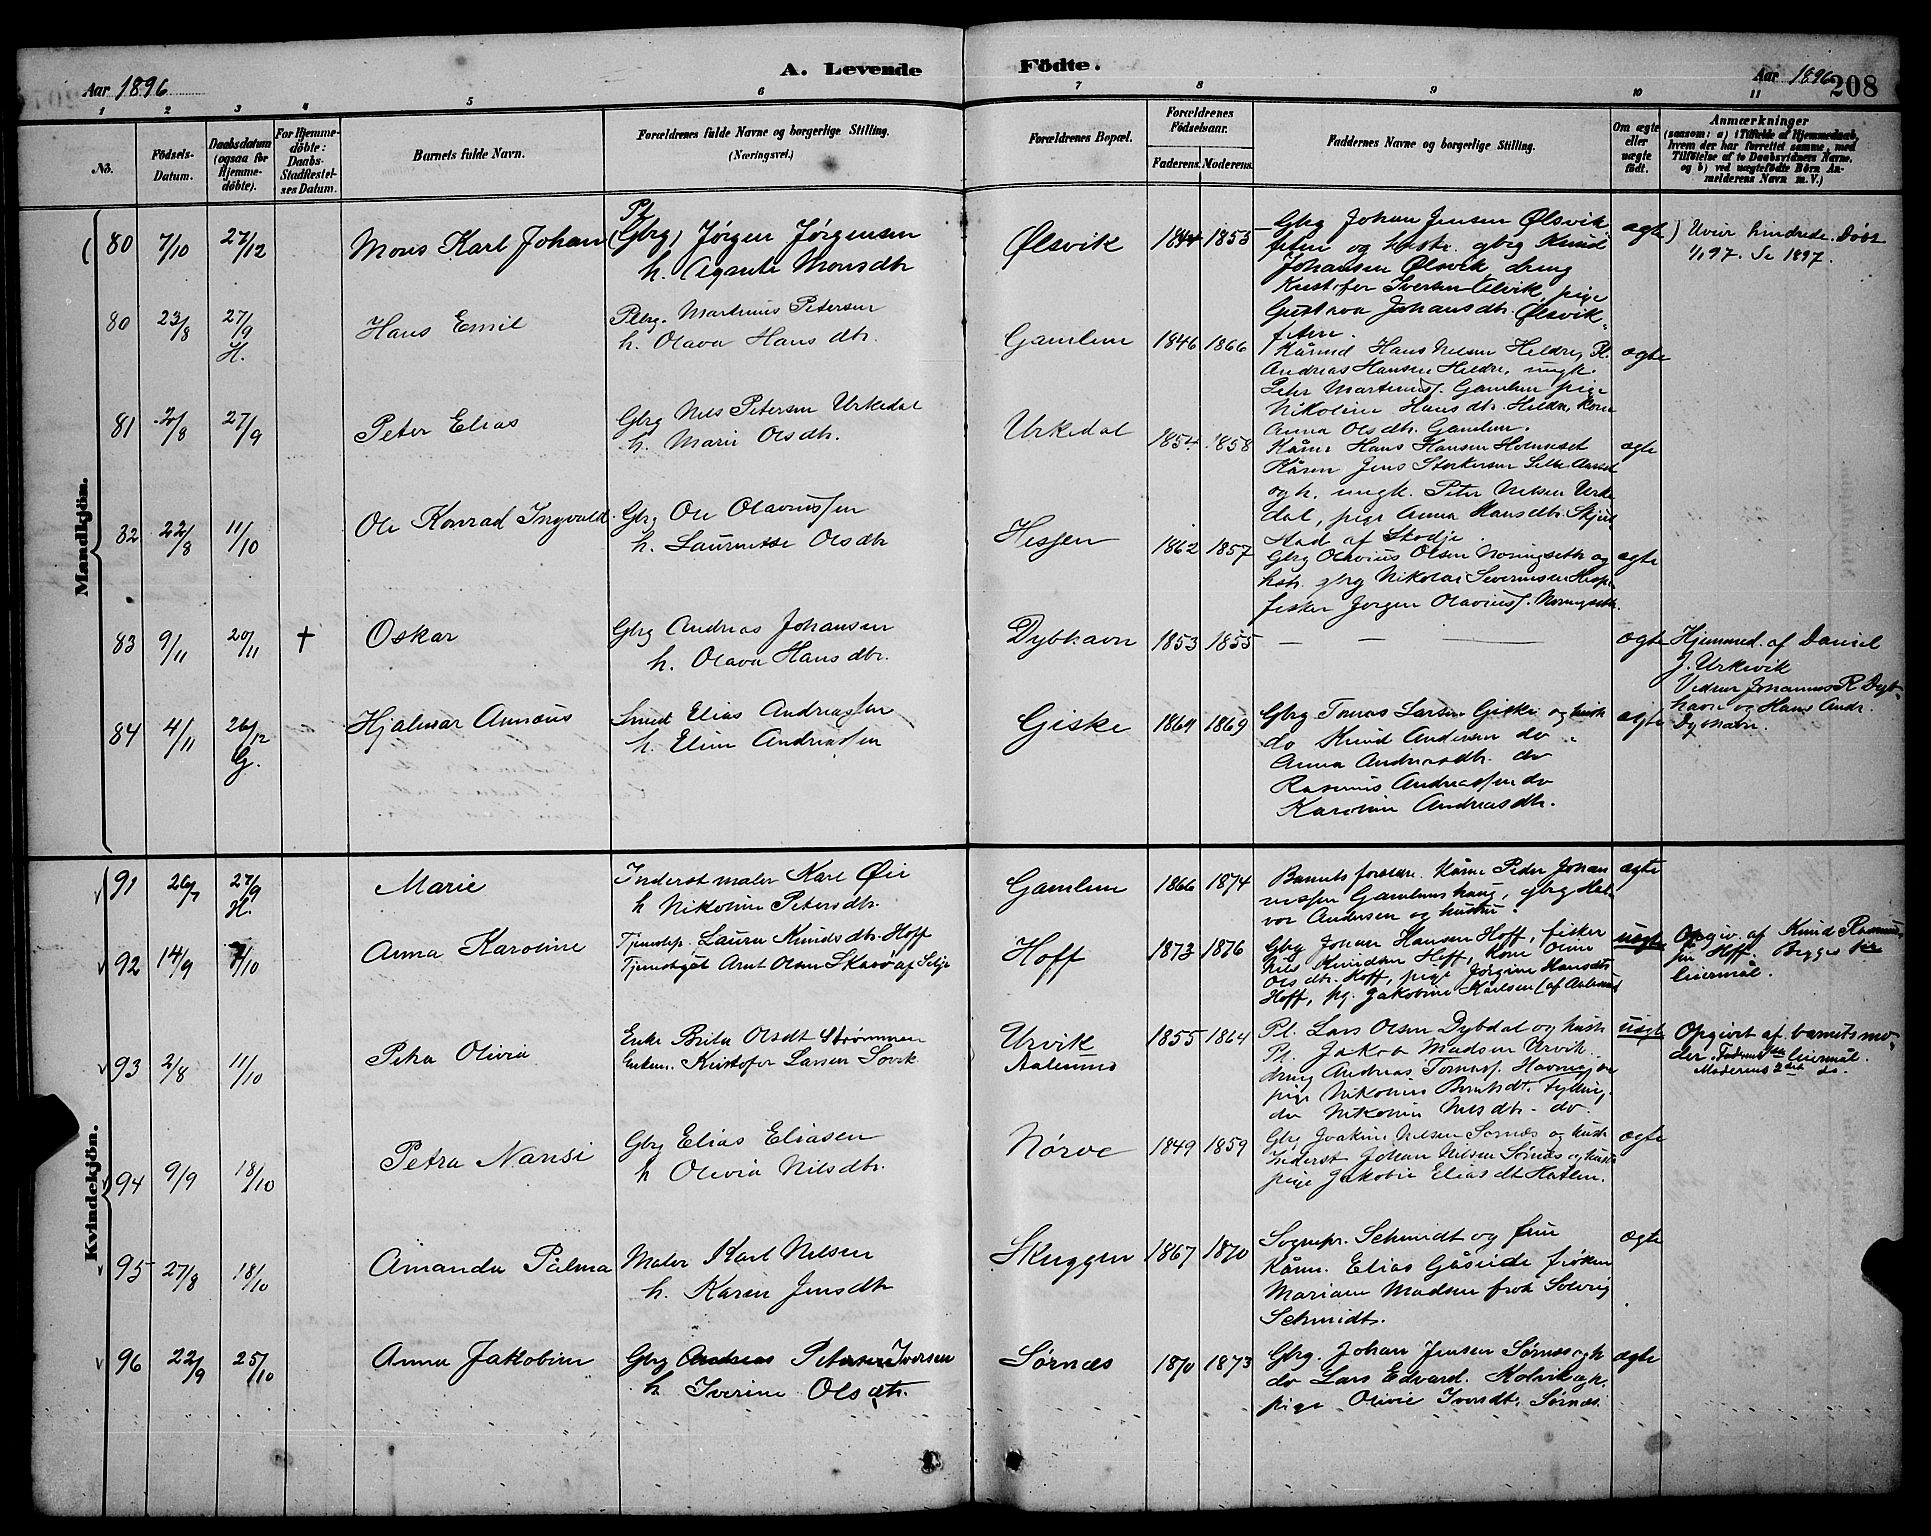 Aar 1896
A. Levende
Födte.
Aar 1896
208
1 2 3 4 5 6 7 8 9 10 11
No.
Födsels-
Datum.
Daabsdatum
(ogsaa for
Hjemme-
döbte).
For Hjemme-
döbte:
Daabs-
Stadfæstel-
ses Datum.
Barnets fulde Navn.
Forældrenes fulde Navne og borgerlige Stilling.
(Næringsvei.)
Forældrenes Bopæl.
Forældrenes
Födselsaar.
Faderens. Moderens.
Faddernes Navne og borgerlige Stilling.
Om ægte
eller
uægte
födt.
Anmærkninger
(saasom: a) i Tilfælde af Hjemmedaab,
hvem der har forrettet samme, med
Tilföielse af to Daabsvidners Navne,
og b) ved uægtefödte Börn An-
melderens Navn m. V.)
Mandkjön.
80 7/10 27/12
Mons Karl Johan
Pl.
(Gbrg) Jørgen Jørgensen
h. Agnete Monsdtr
Ølsvik
1844 1853
Gbrg Johan Jensen Ølsvik
feten og hustr. gbrg Knud
Johansen Ølsvik, dreng
Kristofer Iversen Ølsvik, pige
Gustava Johansdtr. Ølsvik-
feten.
ægte
) Uveir hindrede. Døbt
1/1 97. Se 1897.
80 23/8 27/9
H.
Hans Emil
Pbrg. Martinus Petersen
h. Olava Hansdtr.
Gamlem
1846 1866
Kårmd Hans Nelsen Heldre, Pl.
Andreas Hansen Hildre, ungk.
Peter Martinuss. Gamlem pige
Nikoline Hansdtr. Hildre, kone
Anna Olsdtr. Gamlem.
ægte
81 2/8 27/9
Peter Elias
Gbrg Nils Petersen Urkedal
h. Marie Olsdtr.
Urkedal
1854 1858
Kårm Hans Hansen Holmeset
Kårm Jens Storkersen
og h. ungk. Peter Nilsen Urke
dal, pige Anna Hansdtr. Skjel
stad af Skodje.
ægte
82 22/8 11/10
Ole Konrad Ingvald
Gbrg Ole Olavussen
h. Laurentse Olsdtr
Hessen
1862 1857
Gbrg Olavius Olsen Nøringseth og
hstr. gbrg Nikolai Severinsen Hesse
fisker Jørgen Olavius. Nøringseth.
ægte
83 9/11 20/11 †
Oskar
Gbrg Andreas Johansen
h. Olava Hansdtr.
Dybhavn
1853 1855
— — —
ægte
Hjemmed. af Daniel
J. Urkevik
Vidner Johannes R. Dyb-
havn og Hans Andr.
Dybhavn.
84 4/11 26/12
G.
Hjalmar Annæus
Smed Elias Andreassen
h. Eline Andreassen
Giske
1864 1869
Gbrg Tomas Larsen Giske og hustr
do Knud Andersen do
Anna Andreasdtr. do
Rasmus Andreassen do
Karoline Andreasdtr.
ægte
Kvindekjön.
91 26/7 27/9
H.
Marie
Inderst maler Karl Øie
h Nikoline Petersdtr.
Gamlem
1866 1874
Barnets forældre. Kårm Peder Johan
nessen Gamlemshaug, gbrg Hal-
vor Andersen og hustru.
ægte
92 14/9 /10
Anna Karoline
Tjenestep. Laura Knudsdtr. Hoff
Tjenestegut Arnt Olsen Skarø af Selje
Hoff
1873 1876
Gbrg Johan Hansen Hoff, fisker
Nils Knudsen Hoff, kone Oline
Olsdtr. Hoff, pige Jørgine Hansdtr
Hoff, pg. Jakobine Karlsen (af Aalesund
uægte
Opgiv. af Knud Rasmus-
sen Hoff. Begges 1ste
leiermål.
93 2/8 11/10
Petra Olivia
Enke Brita Olsdt Strømmen
Enkem. Kristofer Larsen Søvik
Urvik
Aalesund
1855 1864
Pl. Lars Olsen Dybdal og hustr
Pl. Jakob Madsen Urvik.
dreng Andreas Tomess. Havnegjær
pige Nikoline Berntsdt. Fylling,
do Nikoline Nilsdtr. do.
uægte
Opgivet af barnets mo-
der. Faderens 1ste leiermål.
Moderens 2det do.
94 9/9 18/10
Petra Nansi
Gbrg Elias Eliasen
h Olivia Nilsdtr.
Nørve
1849 1859
Gbrg Joakim Nilsen Sørnæs og hustr
Inderst Johan Nilsen Sørnæs og hustr
pige Jakobie Eliasdt Hatlem.
ægte
95 27/8 18/10
Amanda Palma
Maler Karl Nilsen
h. Karen Jensdtr
Skuggen
1867 1870
Sognepr. Schmidt og frue
Kårm. Elias Gåseide frøken
Mariane Madsen frøk Solveig
Schmidt.
ægte
96 22/9 25/10
Anna Jakobine
Gbrg Andreas Petersen Iversen
h Iverine Olsdtr.
Sørnæs
1870 1873
Gbrg. Johan Jensen Sørnæs og h
do Lars Edvard. Kolvik og h.
pige Olivie Iversdt. Sørnæs.
ægte